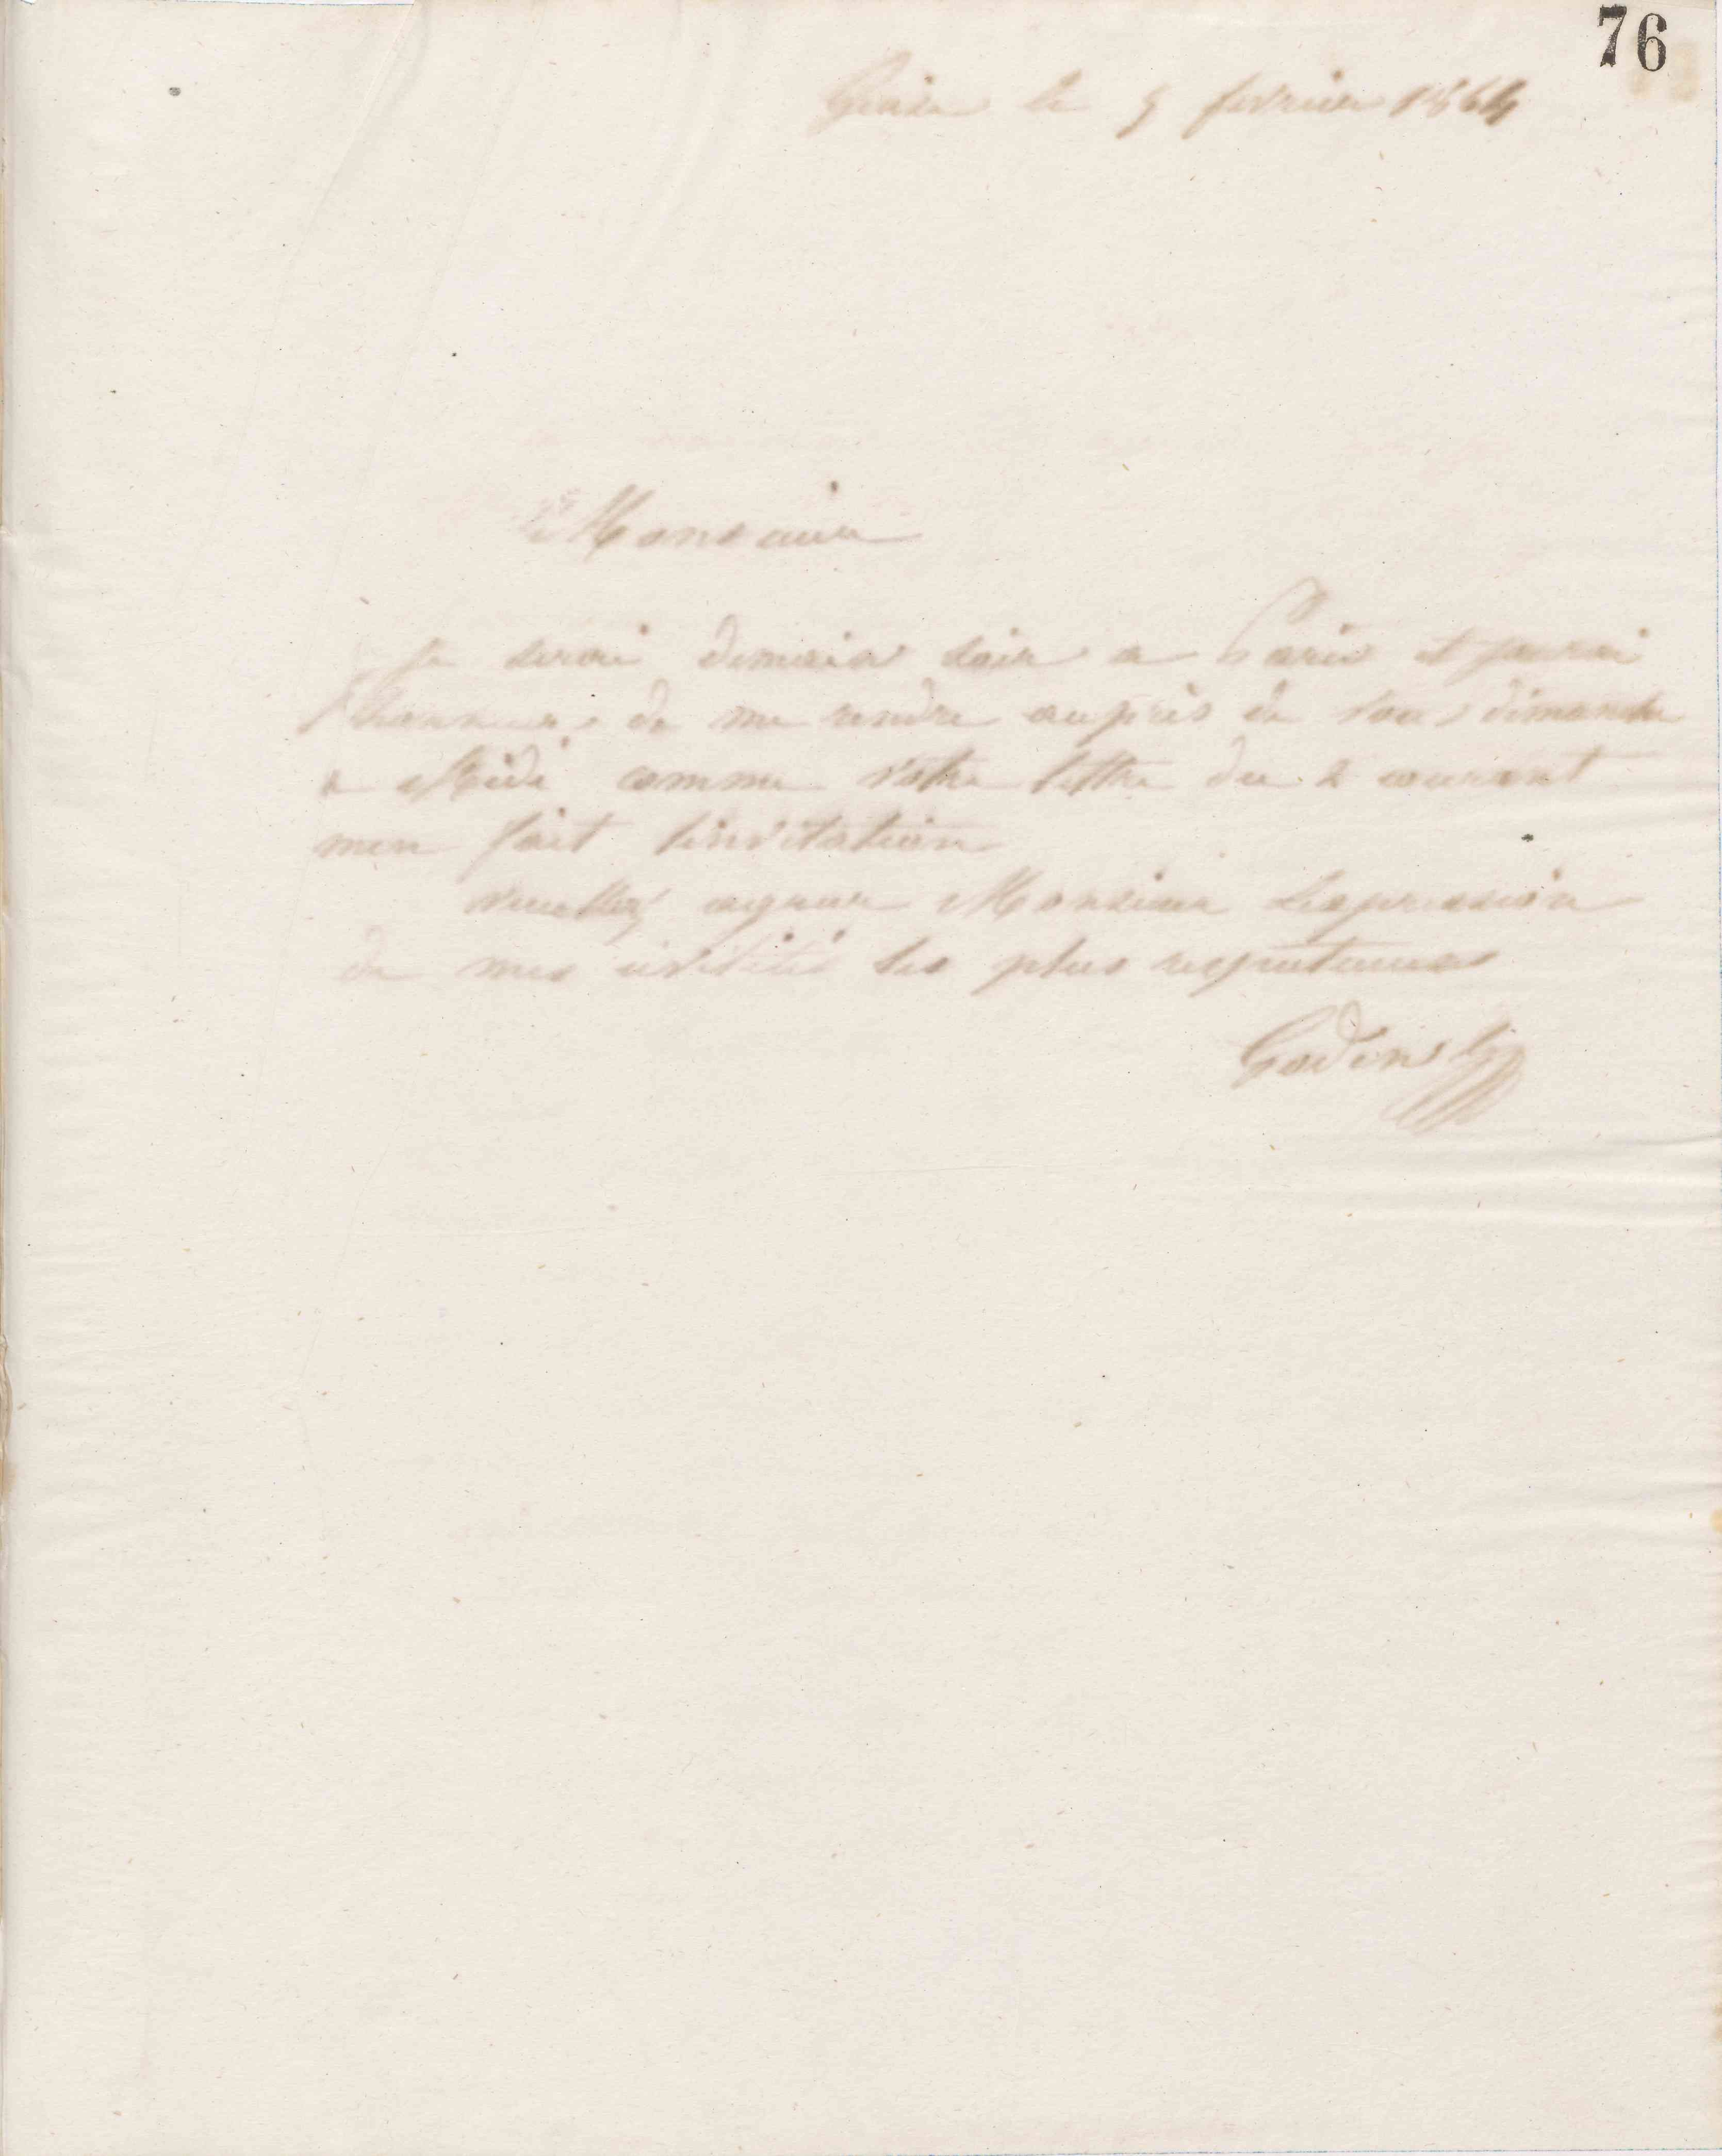 76
Guise le 5 février 1864
Monsieur
Je serai demain soir a Paris et jaurai
lhonneur de me rendre auprès de vous dimanche
a Midi comme votre lettre du 2 courant
men fait linvitation
veuillez agreer Monsieur lexpression
de mes civilités les plus respectueuses
Godin